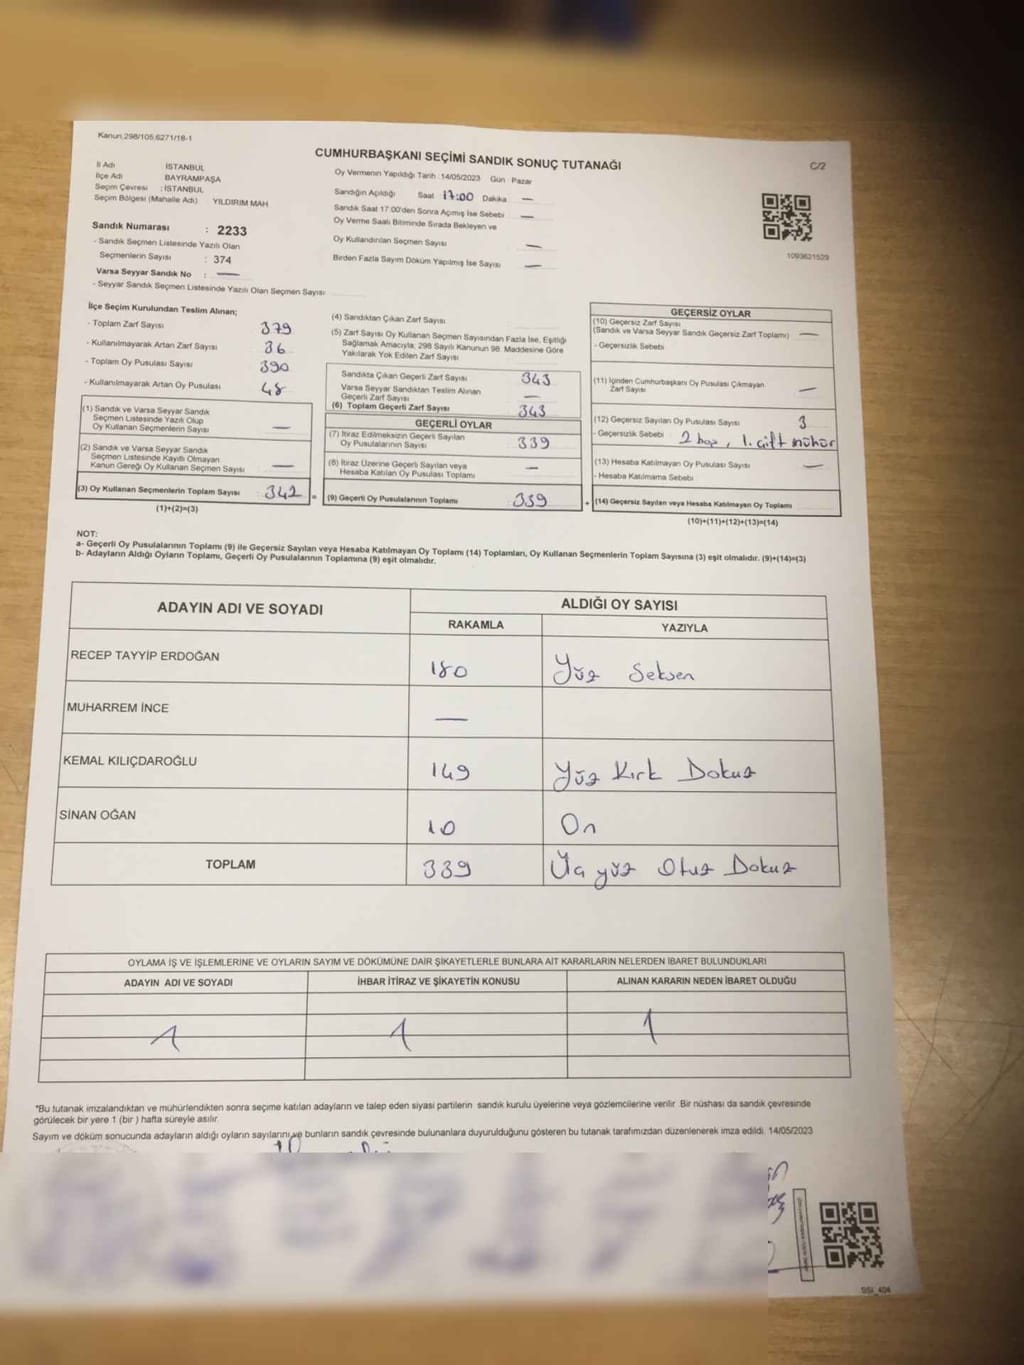 Kanun.298/105,6271/18-1
CUMHURBAŞKANI SEÇİMİ SANDIK SONUÇ TUTANAĞI
C/2
İl Adı İSTANBUL
İlçe Adı BAYRAMPAŞA
Seçim Çevresi : İSTANBUL
Seçim Bölgesi (Mahalle Adı) YILDIRIM MAH
Oy Vermenin Yapıldığı Tarih :14/05/2023 Gün Pazar
Sandığın Açıldığı Saat 17:00 Dakika —
Sandık Saat 17:00'den Sonra Açımış İse Sebebi —
Oy Verme Saati Bitiminde Sırada Bekleyen ve
Oy Kullandırılan Seçmen Sayısı —
Birden Fazla Sayım Döküm Yapılmış İse Sayısı —
1093621529
Sandık Numarası : 2233
- Sandık Seçmen Listesinde Yazılı Olan
Seçmenlerin Sayısı : 374
Varsa Seyyar Sandık No : —
- Seyyar Sandık Seçmen Listesinde Yazılı Olan Seçmen Sayısı
İlçe Seçim Kurulundan Teslim Alınan;
- Toplam Zarf Sayısı 379
- Kullanılmayarak Artan Zarf Sayısı 36
- Toplam Oy Pusulası Sayısı 390
- Kullanılmayarak Artan Oy Pusulası 48
(1) Sandık ve Varsa Seyyar Sandık
Seçmen Listesinde Yazılı Olup
Oy Kullanan Seçmenlerin Sayısı —
(2) Sandık ve Varsa Seyyar Sandık
Seçmen Listesinde Kayıtlı Olmayan
Kanun Gereği Oy Kullanan Seçmen Sayısı —
(3) Oy Kullanan Seçmenlerin Toplam Sayısı : 342 =
(1)+(2)=(3)
(4) Sandıktan Çıkan Zarf Sayısı
(5) Zarf Sayısı Oy Kullanan Seçmen Sayısından Fazla İse, Eşitliği
Sağlamak Amacıyla; 298 Sayılı Kanunun 98. Maddesine Göre
Yakılarak Yok Edilen Zarf Sayısı
Sandıkta Çıkan Geçerli Zarf Sayısı 343
Varsa Seyyar Sandıktan Teslim Alınan
Geçerli Zarf Sayısı —
(6) Toplam Geçerli Zarf Sayısı 343
GEÇERLİ OYLAR
(7) İtiraz Edilmeksizin Geçerli Sayılan
Oy Pusulalarının Sayısı 339
(8) İtiraz Üzerine Geçerli Sayılan veya
Hesaba Katılan Oy Pusulası Toplamı —
(9) Geçerli Oy Pusulalarının Toplamı 339 +
GEÇERSİZ OYLAR
(10) Geçersiz Zarf Sayısı
(Sandık ve Varsa Seyyar Sandık Geçersiz Zarf Toplamı) —
- Geçersizlik Sebebi
(11) İçinden Cumhurbaşkanı Oy Pusulası Çıkmayan
Zarf Sayısı —
(12) Geçersiz Sayılan Oy Pusulası Sayısı 3
- Geçersizlik Sebebi 2 boş, 1. çift mühür
(13) Hesaba Katılmayan Oy Pusulası Sayısı —
- Hesaba Katılmama Sebebi
(14) Geçersiz Sayılan veya Hesaba Katılmayan Oy Toplamı
(10)+(11)+(12)+(13)=(14)
NOT:
a- Geçerli Oy Pusulalarının Toplamı (9) ile Geçersiz Sayılan veya Hesaba Katılmayan Oy Toplamı (14) Toplamları, Oy Kullanan Seçmenlerin Toplam Sayısına (3) eşit olmalıdır. (9)+(14)=(3)
b- Adayların Aldığı Oyların Toplamı, Geçerli Oy Pusulalarının Toplamına (9) eşit olmalıdır.
ADAYIN ADI VE SOYADI ALDIĞI OY SAYISI
RAKAMLA YAZIYLA
RECEP TAYYİP ERDOĞAN 180 Yüz Seksen
MUHARREM İNCE —
KEMAL KILIÇDAROĞLU 149 Yüz Kırk Dokuz
SİNAN OĞAN 10 On
TOPLAM 339 Üç yüz Otuz Dokuz
OYLAMA İŞ VE İŞLEMLERİNE VE OYLARIN SAYIM VE DÖKÜMÜNE DAİR ŞİKAYETLERLE BUNLARA AİT KARARLARIN NELERDEN İBARET BULUNDUKLARI
ADAYIN ADI VE SOYADI İHBAR İTİRAZ VE ŞİKAYETİN KONUSU ALINAN KARARIN NEDEN İBARET OLDUĞU
*Bu tutanak imzalandıktan ve mühürlendikten sonra seçime katılan adayların ve talep eden siyasi partilerin sandık kurulu üyelerine veya gözlemcilerine verilir. Bir nüshası da sandık çevresinde
görülecek bir yere 1 (bir ) hafta süreyle asılır.
Sayım ve döküm sonucunda adayların aldığı oyların sayılarını ve bunların sandık çevresinde bulunanlara duyurulduğunu gösteren bu tutanak tarafımızdan düzenlenerek imza edildi. 14/05/2023